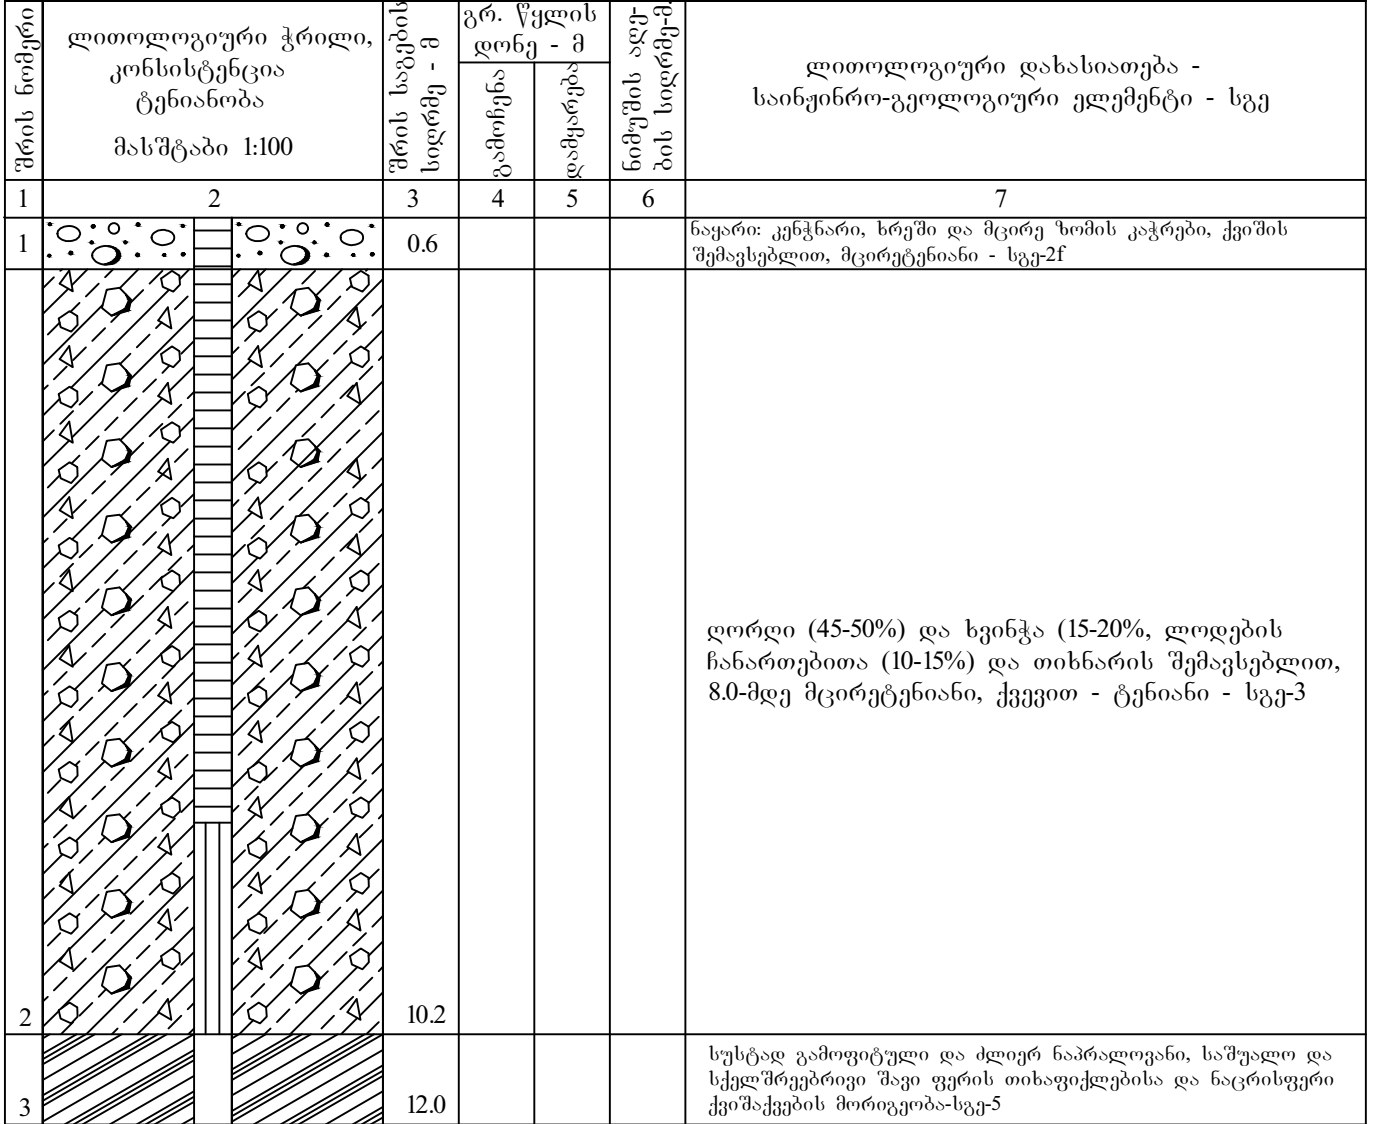 შრის ნომერი
ლითოლოგიური ჭრილი,
კონსისტენცია
ტენიანობა
მასშტაბი 1:100
შრის საგების
სიღრმე - მ
გრ. წყლის
დონე - მ
გამოჩენა
დამყარება
ნიმუშის აღე-
ბის სიღრმე-მ.
ლითოლოგიური დახასიათება -
საინჟინრო-გეოლოგიური ელემენტი - სგე
1 2 3 4 5 6 7
1 0.6 ნაყარი: კენჭნარი, ხრეში და მცირე ზომის კაჭრები, ქვიშის
შემავსებლით, მცირეტენიანი - სგე-2f
ღორღი (45-50%) და ხვინჭა (15-20%, ლოდების
ჩანართებითა (10-15%) და თიხნარის შემავსებლით,
8.0-მდე მცირეტენიანი, ქვევით - ტენიანი - სგე-3
2 10.2
სუსტად გამოფიტული და ძლიერ ნაპრალოვანი, საშუალო და
სქელშრეებრივი შავი ფერის თიხაფიქლებისა და ნაცრისფერი
3 12.0 ქვიშაქვების მორიგეობა-სგე-5